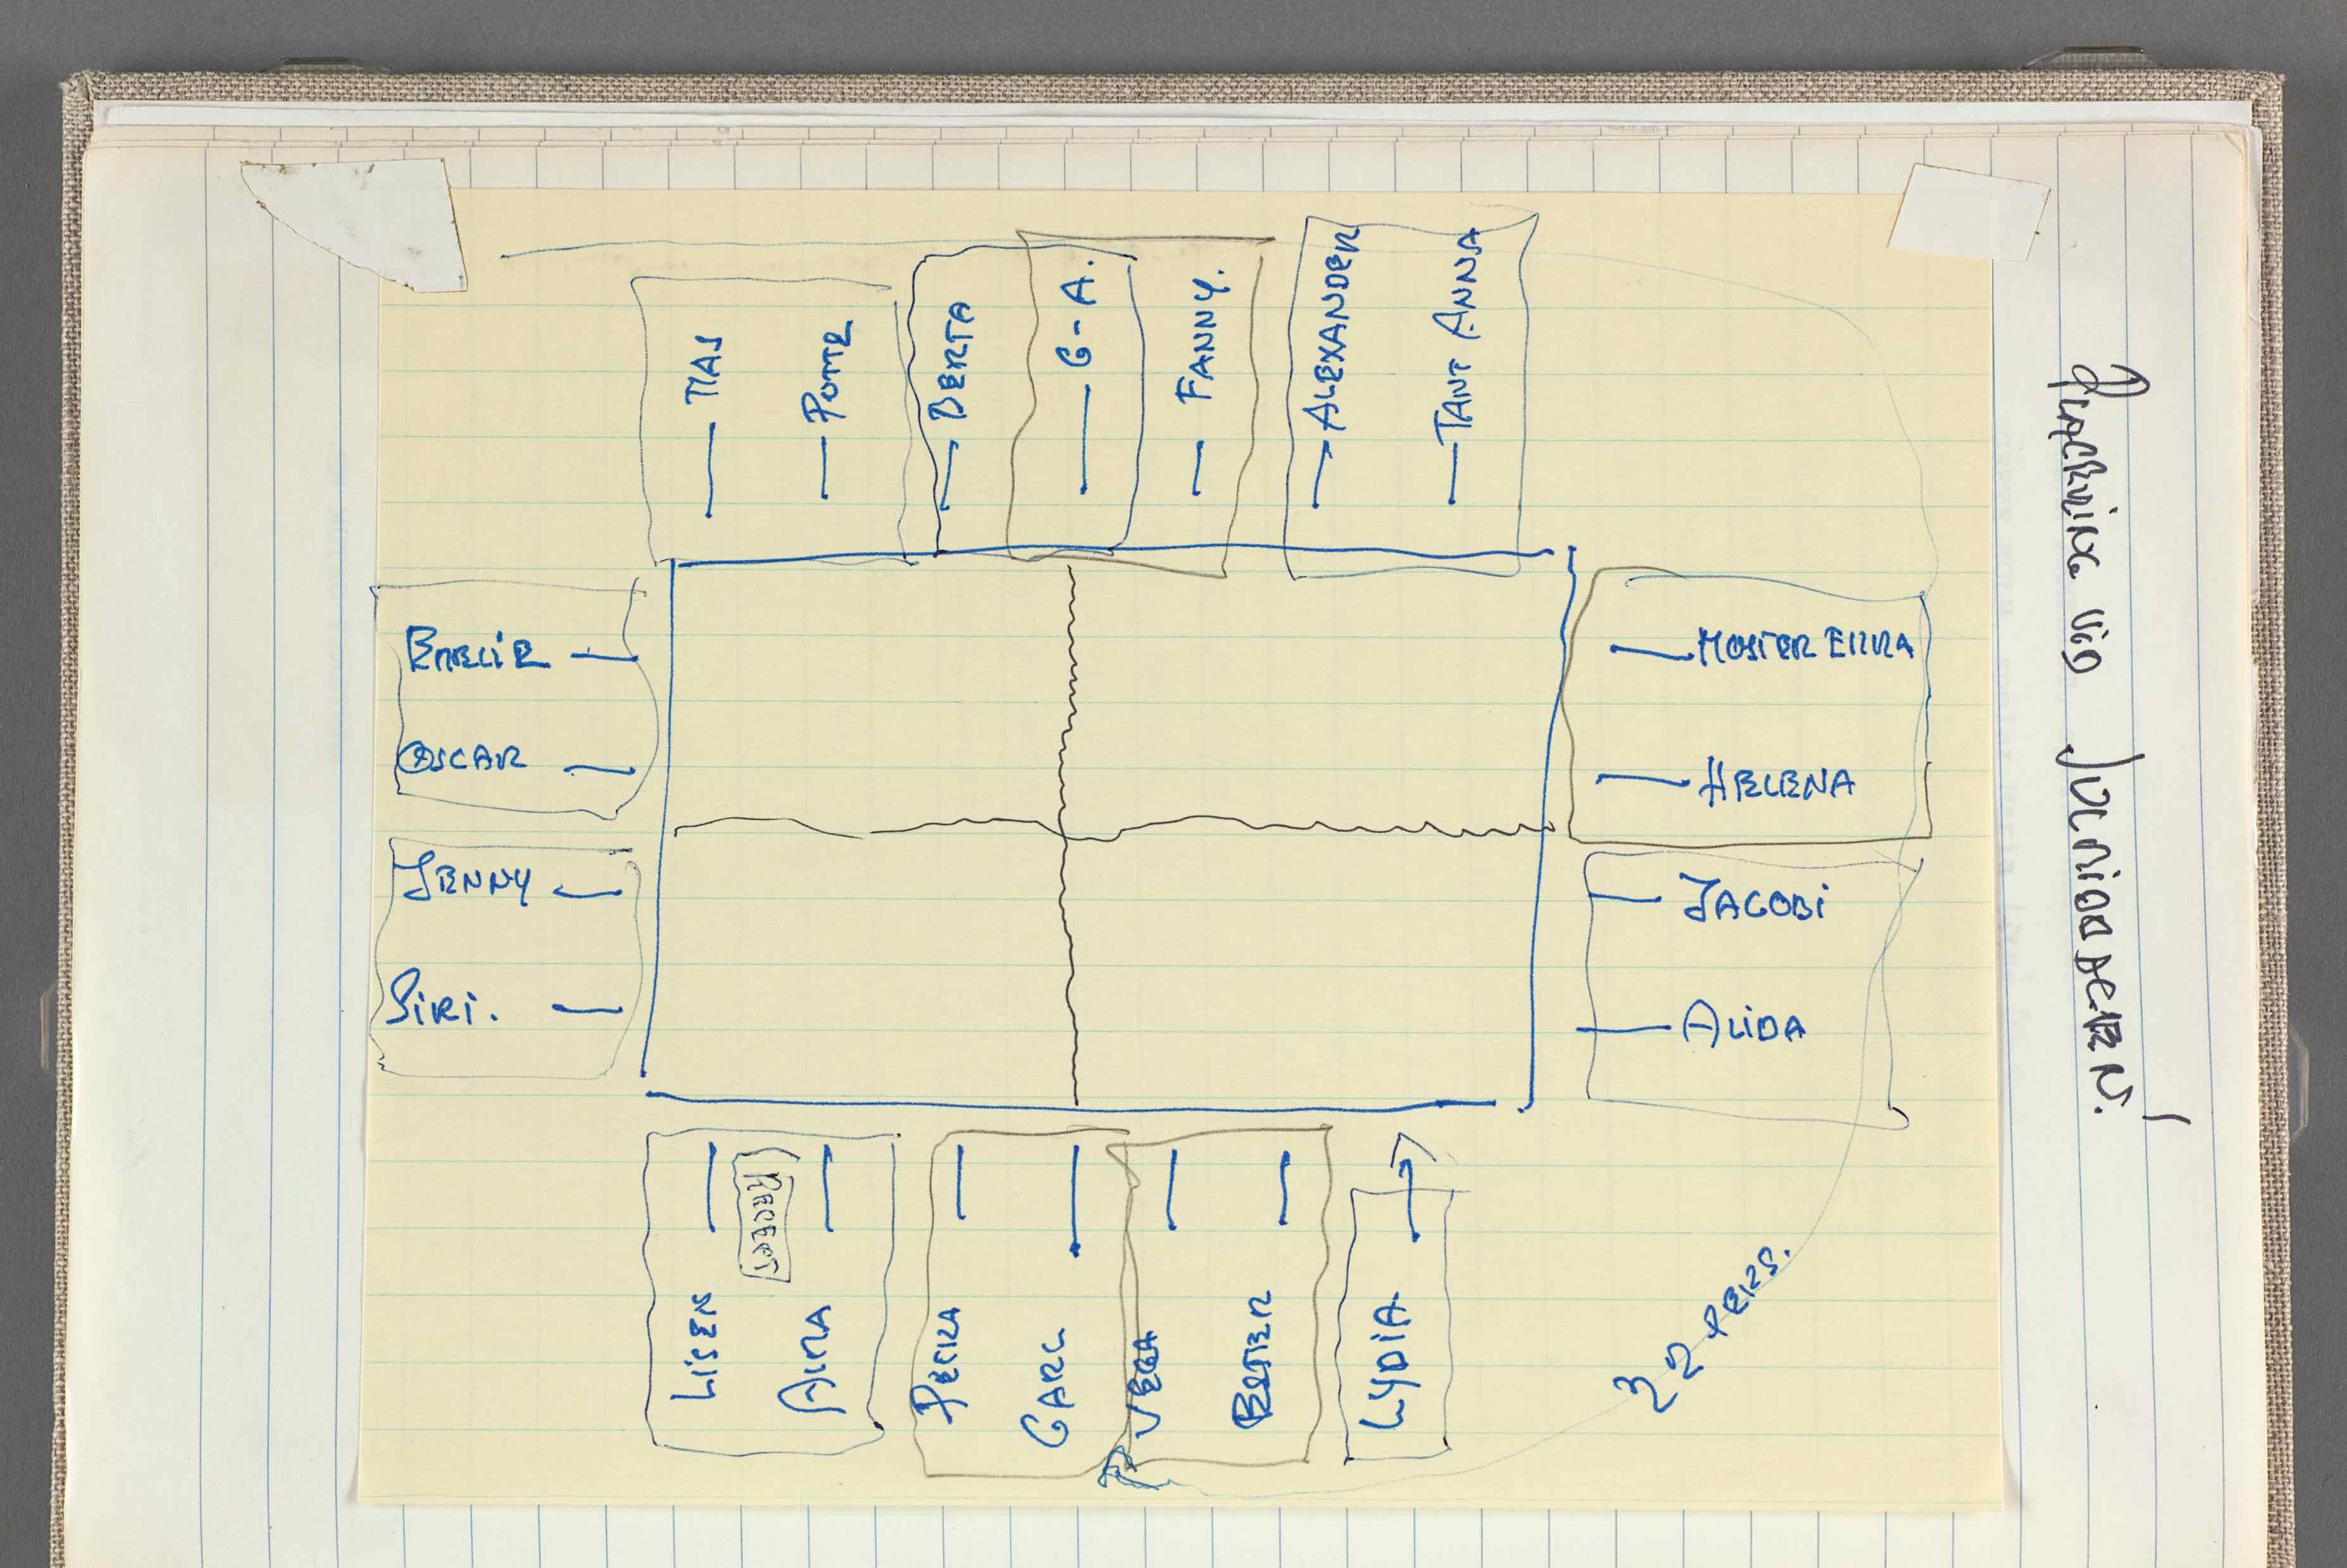 Placering vid Julmiddagen!
MAJ
PUTTE
BERTA
G-A.
FANNY.
ALEXANDER
TANT ANNA
EMELIE
OSCAR
JENNY
SIRI.
MOSTER EMMA
HELENA
JACOBI
ALIDA
LISEN
ALMA
PETRA
CARL
VEGA
ESTER
LYDIA
22 PERS.